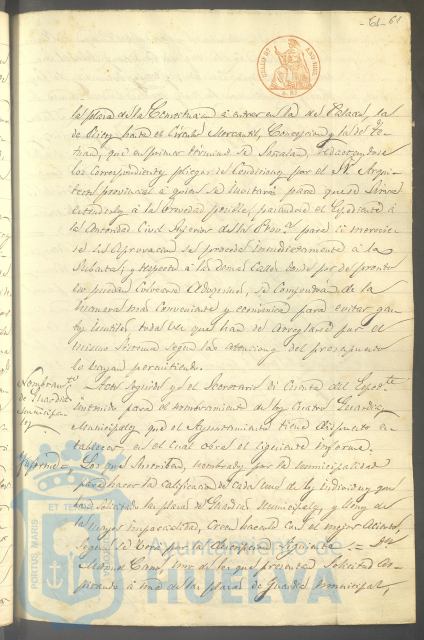 -61- 61
la plaza de la Constitucion á entrar en la de Palacio, la
de Ricos frente el Circulo Mercantil, Concepcion y la de Te-
tuan, que en primer término se Señalan, redactandose
los Correspondientes pliegos de Condiciones por el Sr. Arqui-
tecto provincial á quien se invitará para que se sirva
estenderlos á la brevedad posible, pasandose el Espediente á
la Autoridad Civil Superior de la Prov.ª para si merecie-
se su Aprovacion se proceda inmediatamente á la
Subasta; y respecto á las demas Calles donde por de pronto
no puedan Colocarse Adoquines, se Compondran de la
manera mas Conveniente y economica para evitar gas-
tos inutiles toda vez que han de Arreglarse por el
mismo Sistema segun las atenciones del presupuesto
lo vayan permitiendo.
Nombram.to
de Guardias
municipa-
les
Acto seguido yo el Secretario di Cuenta del Esped.te
instruido para el nombramiento de los Cuatro Guardias
Municipales que el Ayuntamiento tiene dispuesto es-
tablecer, en el Cual obra el siguiente informe.
Informe
Los que Suscriben, nombrados por la municipalidad
para hacer la Calificacion de Cada uno de los individuos que
han solicitado las plazas de Guardias Municipales, y llenos de
la mayor imparcialidad, Creen hacerlo con el mejor Acierto,
segun se
Manuel Cano, uno de los que presentan Solicitud as-
pirando á una de las plazas de Guardia Municipal,
PORTUS MARIS
ET TE
Ayuntamiento de
HUELVA